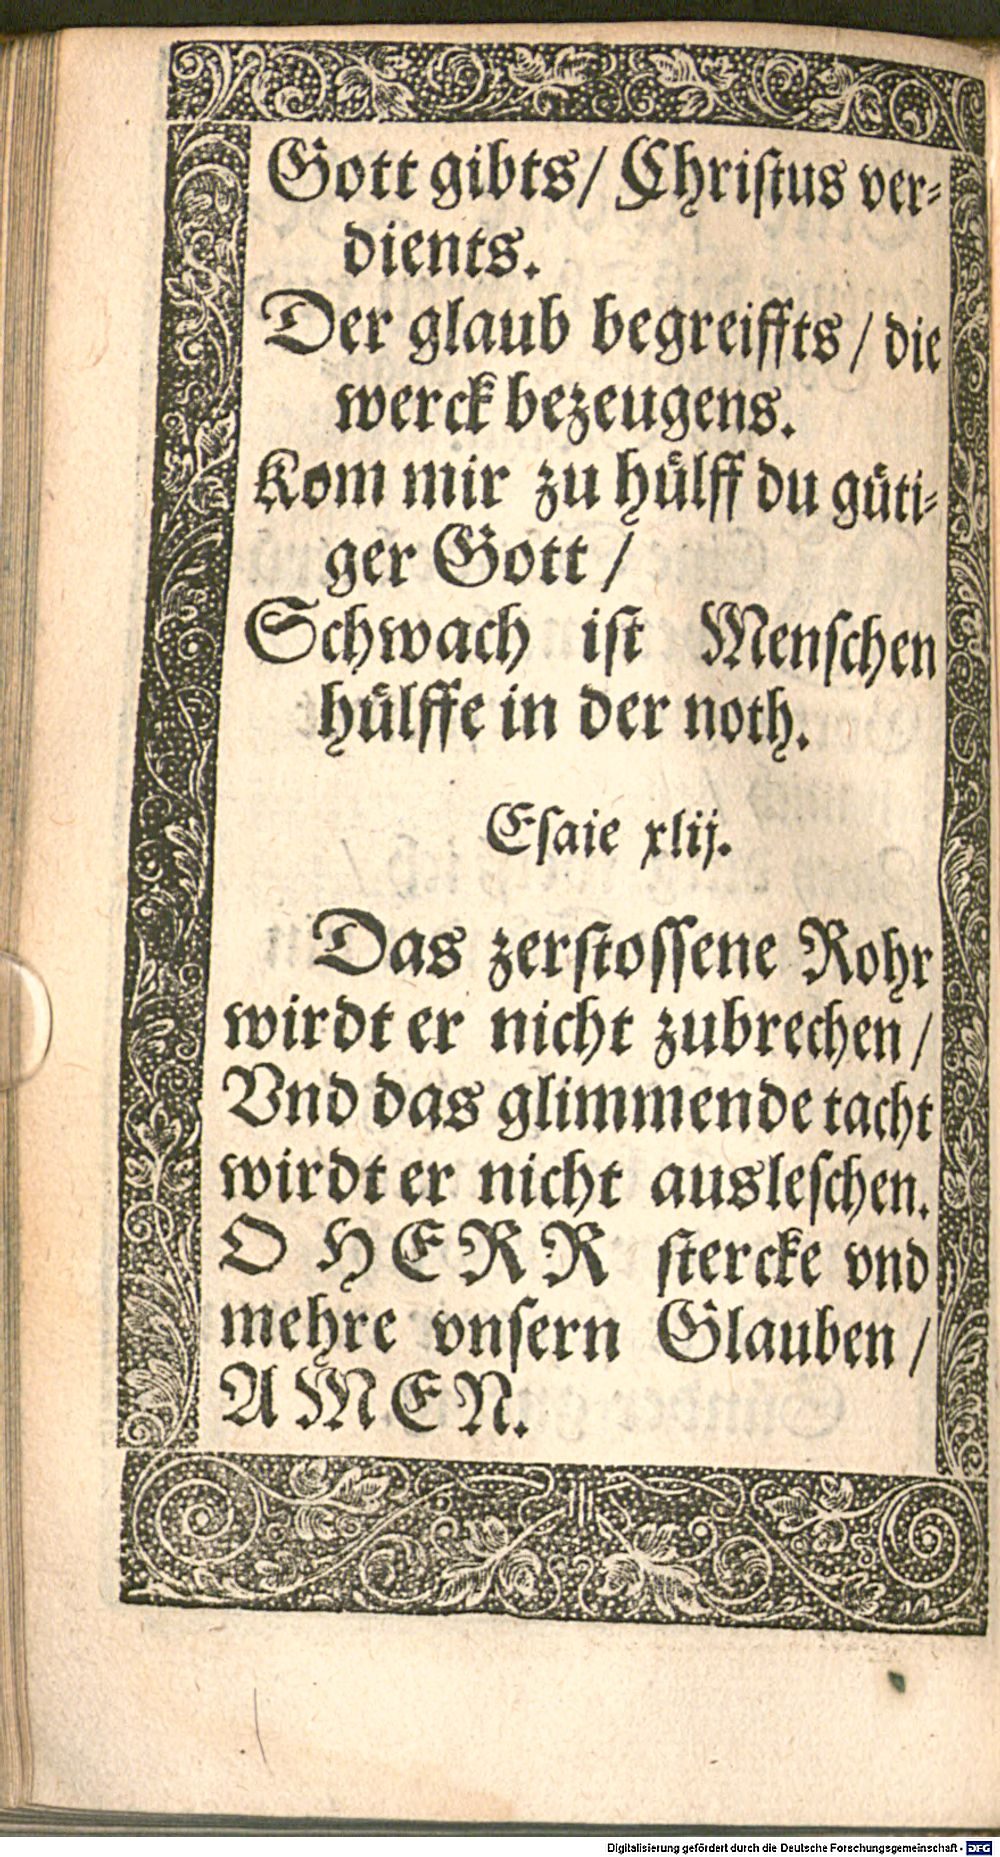 Gott gibts/ Chriſtus ver⸗
dients.
Der glaub begreiffts/ die
werck bezeugens.
Kom mir zu huͤlff du guͤti⸗
ger Gott/
Schwach iſt Menſchen
huͤlffe in der noth.
Eſaie xlij.
Das zerſtoſſene Rohr
wirdt er nicht zubrechen/
Vnd das glimmende tacht
wirdt er nicht ausleſchen.
O HERR ſtercke vnd
mehre vnſern Glauben/
AMEN.
Digitalisierung gefördert durch die Deutsche Forschungsgemeinschaft - DFG